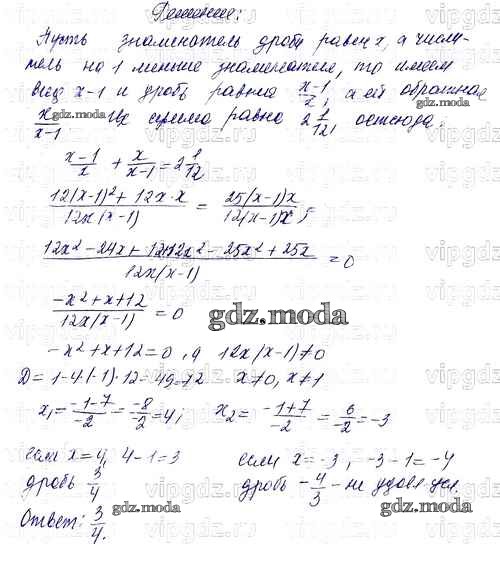 Решение:
Пусть знаменатель дроби равен x, а числи-
тель на 1 меньше знаменателя, то имеем
вид x-1 и дробь равна (x-1)/x, а ей обратная
x/(x-1) Их сумма равна 2 1/12, отсюда:
(x-1)/x + x/(x-1) = 2 1/12
(12(x-1)² + 12x·x)/(12x(x-1)) = 25(x-1)x/(12(x-1)x);
(12x² - 24x + 12 + 12x² - 25x² + 25x)/(12x(x-1)) = 0
(-x² + x + 12)/(12x(x-1)) = 0
-x² + x + 12 = 0, а 12x(x-1) ≠ 0
D = 1-4·(-1)·12 = 49 = 7² x≠0, x≠1
x₁ = (-1-7)/-2 = -8/-2 = 4; x₂ = (-1+7)/-2 = 6/-2 = -3
если x = 4, 4-1=3 если x = -3, -3-1 = -4
дробь 3/4 дробь -4/3 - не удовл.
Ответ: 3/4.
gdz.moda
gdz.moda
gdz.moda
gdz.moda
gdz.moda
vipgdz.ru